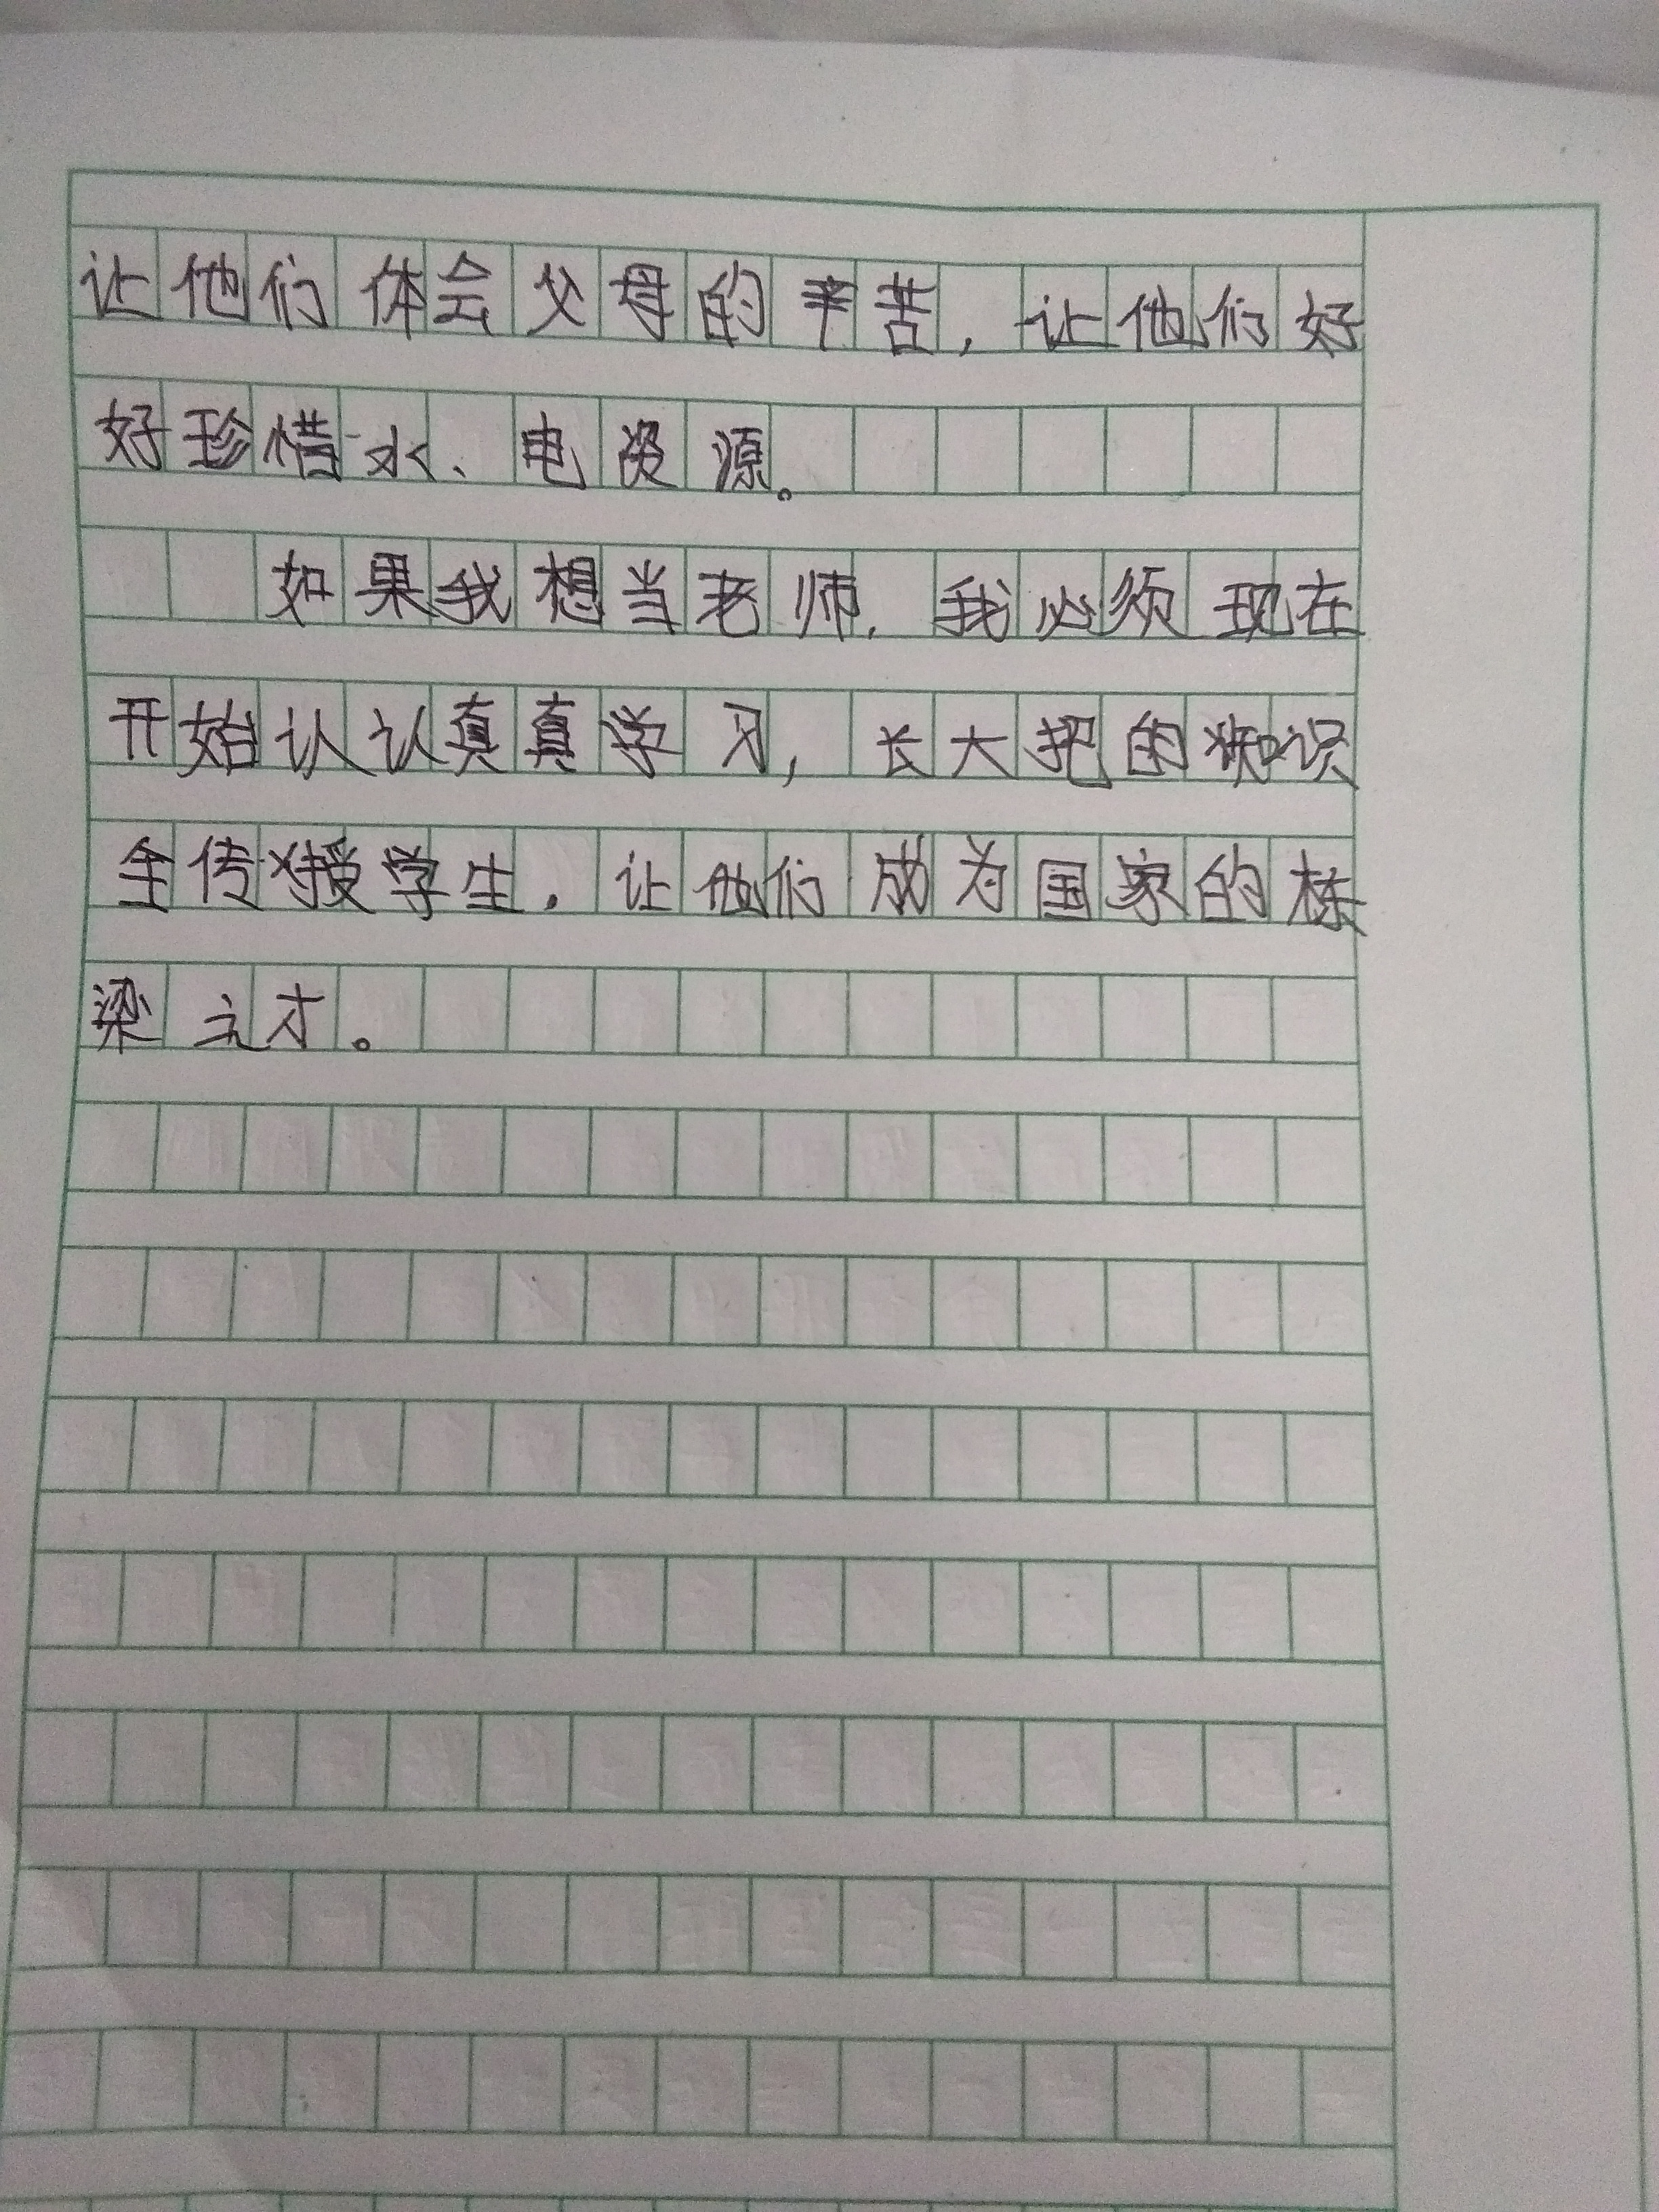 让他们体会父母的辛苦，让他们好
好珍惜水、电资源。
如果我想当老师，我必须现在
开始认认真真学习，长大把的知识
全传授学生，让他们成为国家的栋
梁之才。